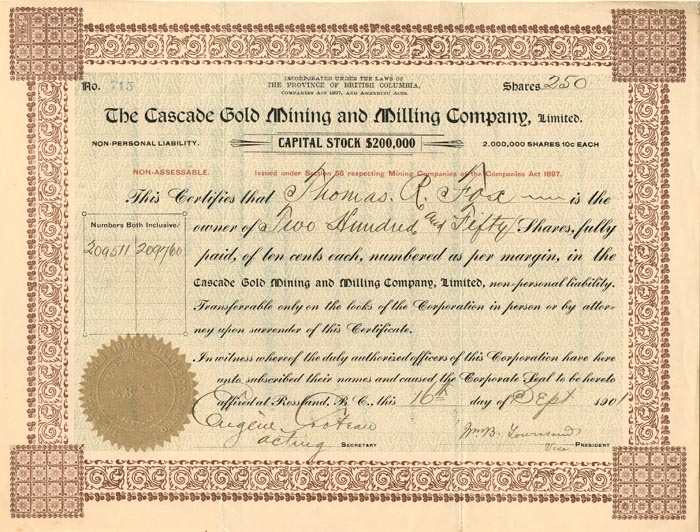 INCORPORATED UNDER THE LAWS OF
THE PROVINCE OF BRITISH COLUMBIA,
COMPANIES ACT 1897, AND AMENDING ACTS.
No. 715
Shares 250
The Cascade Gold Mining and Milling Company, Limited.
NON-PERSONAL LIABILITY.
CAPITAL STOCK $200,000
2,000,000 SHARES 10C EACH
NON-ASSESSABLE.
Issued under Section 56 respecting Mining Companies of the Companies Act 1897.
This Certifies that Thomas. R. Fox is the
owner of Two Hundred and Fifty Shares, fully
paid, of ten cents each, numbered as per margin, in the
Cascade Gold Mining and Milling Company, Limited, non-personal liability.
Transferrable only on the books of the Corporation in person or by attor-
ney upon surrender of this Certificate.
Numbers Both Inclusive.
209511 209760
In witness whereof the duly authorised officers of this Corporation have here
unto subscribed their names and caused the Corporate Seal to be hereto
affixed at Rossland, B. C., this 16th day of Sept 1901
Eugène Croteau
acting SECRETARY
Wm. B. Townsend
Vice PRESIDENT